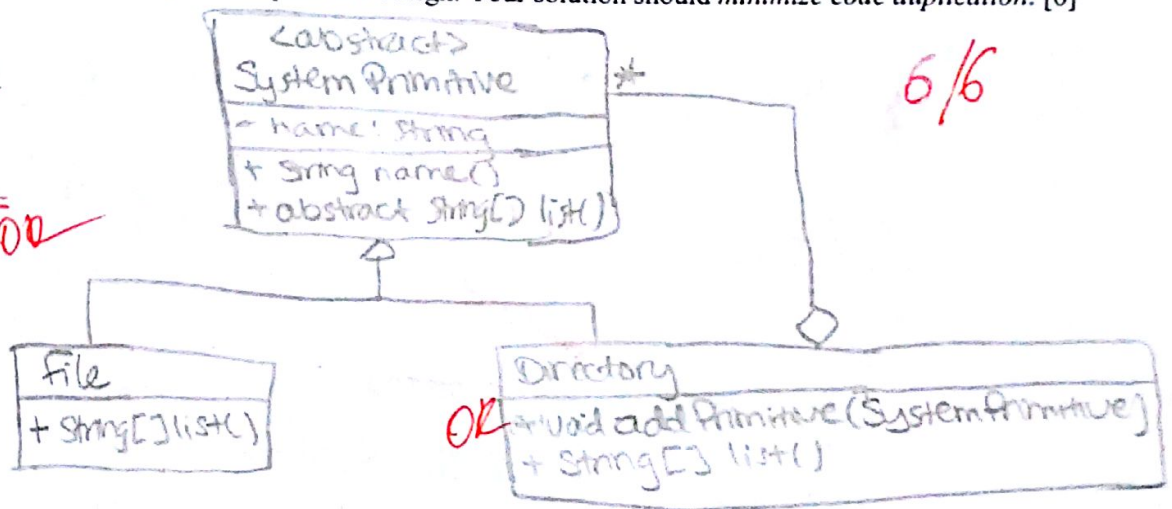 solution should minimize code duplication. [6]
<abstract>
System Primitive
*
6/6
- name: String
+ String name()
+ abstract String[] list()
OR
File
+ String[] list()
Directory
OK
+ void addPrimitive(SystemPrimitive)
+ String[] list()